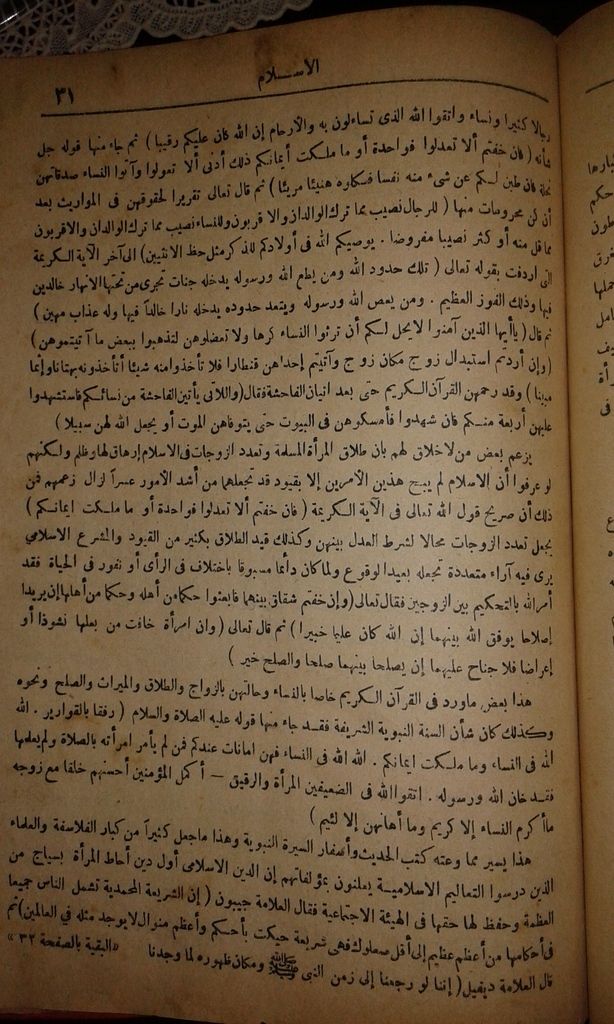 الاسلام
٣١
رجالا كثيرا ونساء واتقوا الله الذى تساءلون به والأرحام إن الله كان عليكم رقيبا ) ثم جاء منها قوله جل
شأنه ( فان خفتم ألا تعدلوا فواحدة أو ما ملكت أيمانكم ذلك أدنى ألا تعولوا وآتوا النساء صدقاتهن
نحلة فان طبن لكم عن شىء منه نفسا فكلوه هنيئا مريئا ) ثم قال تعالى تقريرا لحقوقهن فى المواريث بعد
أن كن محرومات منها ( للرجال نصيب مما ترك الوالدان والاقربون وللنساء نصيب مما ترك الوالدان والاقربون
مما قل منه أو كثر نصيبا مفروضا . يوصيكم الله فى أولادكم للذكر مثل حظ الانثيين ) الى آخر الآية الكريمة
التى اردفت بقوله تعالى ( تلك حدود الله ومن يطع الله ورسوله يدخله جنات تجرى من تحتها الانهار خالدين
فيها وذلك الفوز العظيم . ومن يعص الله ورسوله ويتعد حدوده يدخله نارا خالداً فيها وله عذاب مهين )
ثم قال ( ياأيها الذين آمنوا لا يحل لكم أن ترثوا النساء كرها ولا تعضلوهن لتذهبوا ببعض ما آتيتموهن )
( وإن أردتم استبدال زوج مكان زوج وآتيتم إحداهن قنطارا فلا تأخذوا منه شيئا أتأخذونه بهتانا وإثما
مبينا ) وقد رحمهن القرآن الكريم حتى بعد اتيان الفاحشة فقال ( واللاتى يأتين الفاحشة من نسائكم فاستشهدوا
عليهن أربعة منكم فان شهدوا فأمسكوهن فى البيوت حتى يتوفاهن الموت أو يجعل الله لهن سبيلا )
يزعم بعض من لاخلاق لهم بان طلاق المرأة المسلمة وتعدد الزوجات فى الاسلام إرهاق لها وظلم ولكنهم
لو عرفوا أن الاسلام لم يبح هذين الأمرين إلا بقيود قد تجعلهما من أشد الأمور عسراً لزال زعمهم فمن
ذلك أن صريح قول الله تعالى فى الآية الكريمة ( فان خفتم ألا تعدلوا فواحدة أو ما ملكت ايمانكم )
يجعل تعدد الزوجات محالا لشرط العدل بينهن وكذلك قيد الطلاق بكثير من القيود والشرع الاسلامي
يرى فيه آراء متعددة تجعله بعيد الوقوع ولما كان دائما مسبوقا باختلاف فى الرأى أو نفور فى الحياة فقد
أمر الله بالتحكيم بين الزوجين فقال تعالى ( وإن خفتم شقاق بينهما فابعثوا حكما من أهله وحكما من أهلها إن يريدا
إصلاحا يوفق الله بينهما إن الله كان عليما خبيرا ) ثم قال تعالى ( وان امرأة خافت من بعلها نشوزا أو
إعراضا فلا جناح عليهما إن يصلحا بينهما صلحا والصلح خير )
هذا بعض ماورد فى القرآن الكريم خاصا بالنساء وحالتهن بالزواج والطلاق والميراث والصلح ونحوه
وكذلك كان شأن السنة النبوية الشريفة فقد جاء منها قوله عليه الصلاة والسلام ( رفقا بالقوارير . الله
الله فى النساء وما ملكت ايمانكم . الله الله فى النساء فهن امانات عندكم فمن لم يأمر امرأته بالصلاة ولم يعلمها
فقد خان الله ورسوله . اتقوا الله فى الضعيفين المرأة والرقيق — أكمل المؤمنين أحسنهم خلقا مع زوجه
ماأكرم النساء إلا كريم وما أهانهن إلا لئيم )
هذا يسير مما وعته كتب الحديث وأسفار السيرة النبوية وهذا ماجعل كثيراً من كبار الفلاسفة والعلماء
الذين درسوا التعاليم الاسلامية يعلنون بمؤلفاتهم إن الدين الاسلامى أول دين أحاط المرأة بسياج من
العظمة وحفظ لها حقها فى الهيئة الاجتماعية فقال العلامة جيبون ( إن الشريعة المحمدية تشمل الناس جميعا
فى أحكامها من أعظم عظيم إلى أقل صعلوك فهى شريعة حيكت بأحكم وأعظم منوال لا يوجد مثله فى العالمين ) ثم
قال العلامة ديفيل ( إننا لو رجعنا إلى زمن النبى ﷺ ومكان ظهوره لما وجدنا « البقية بالصفحة ٣٢ »